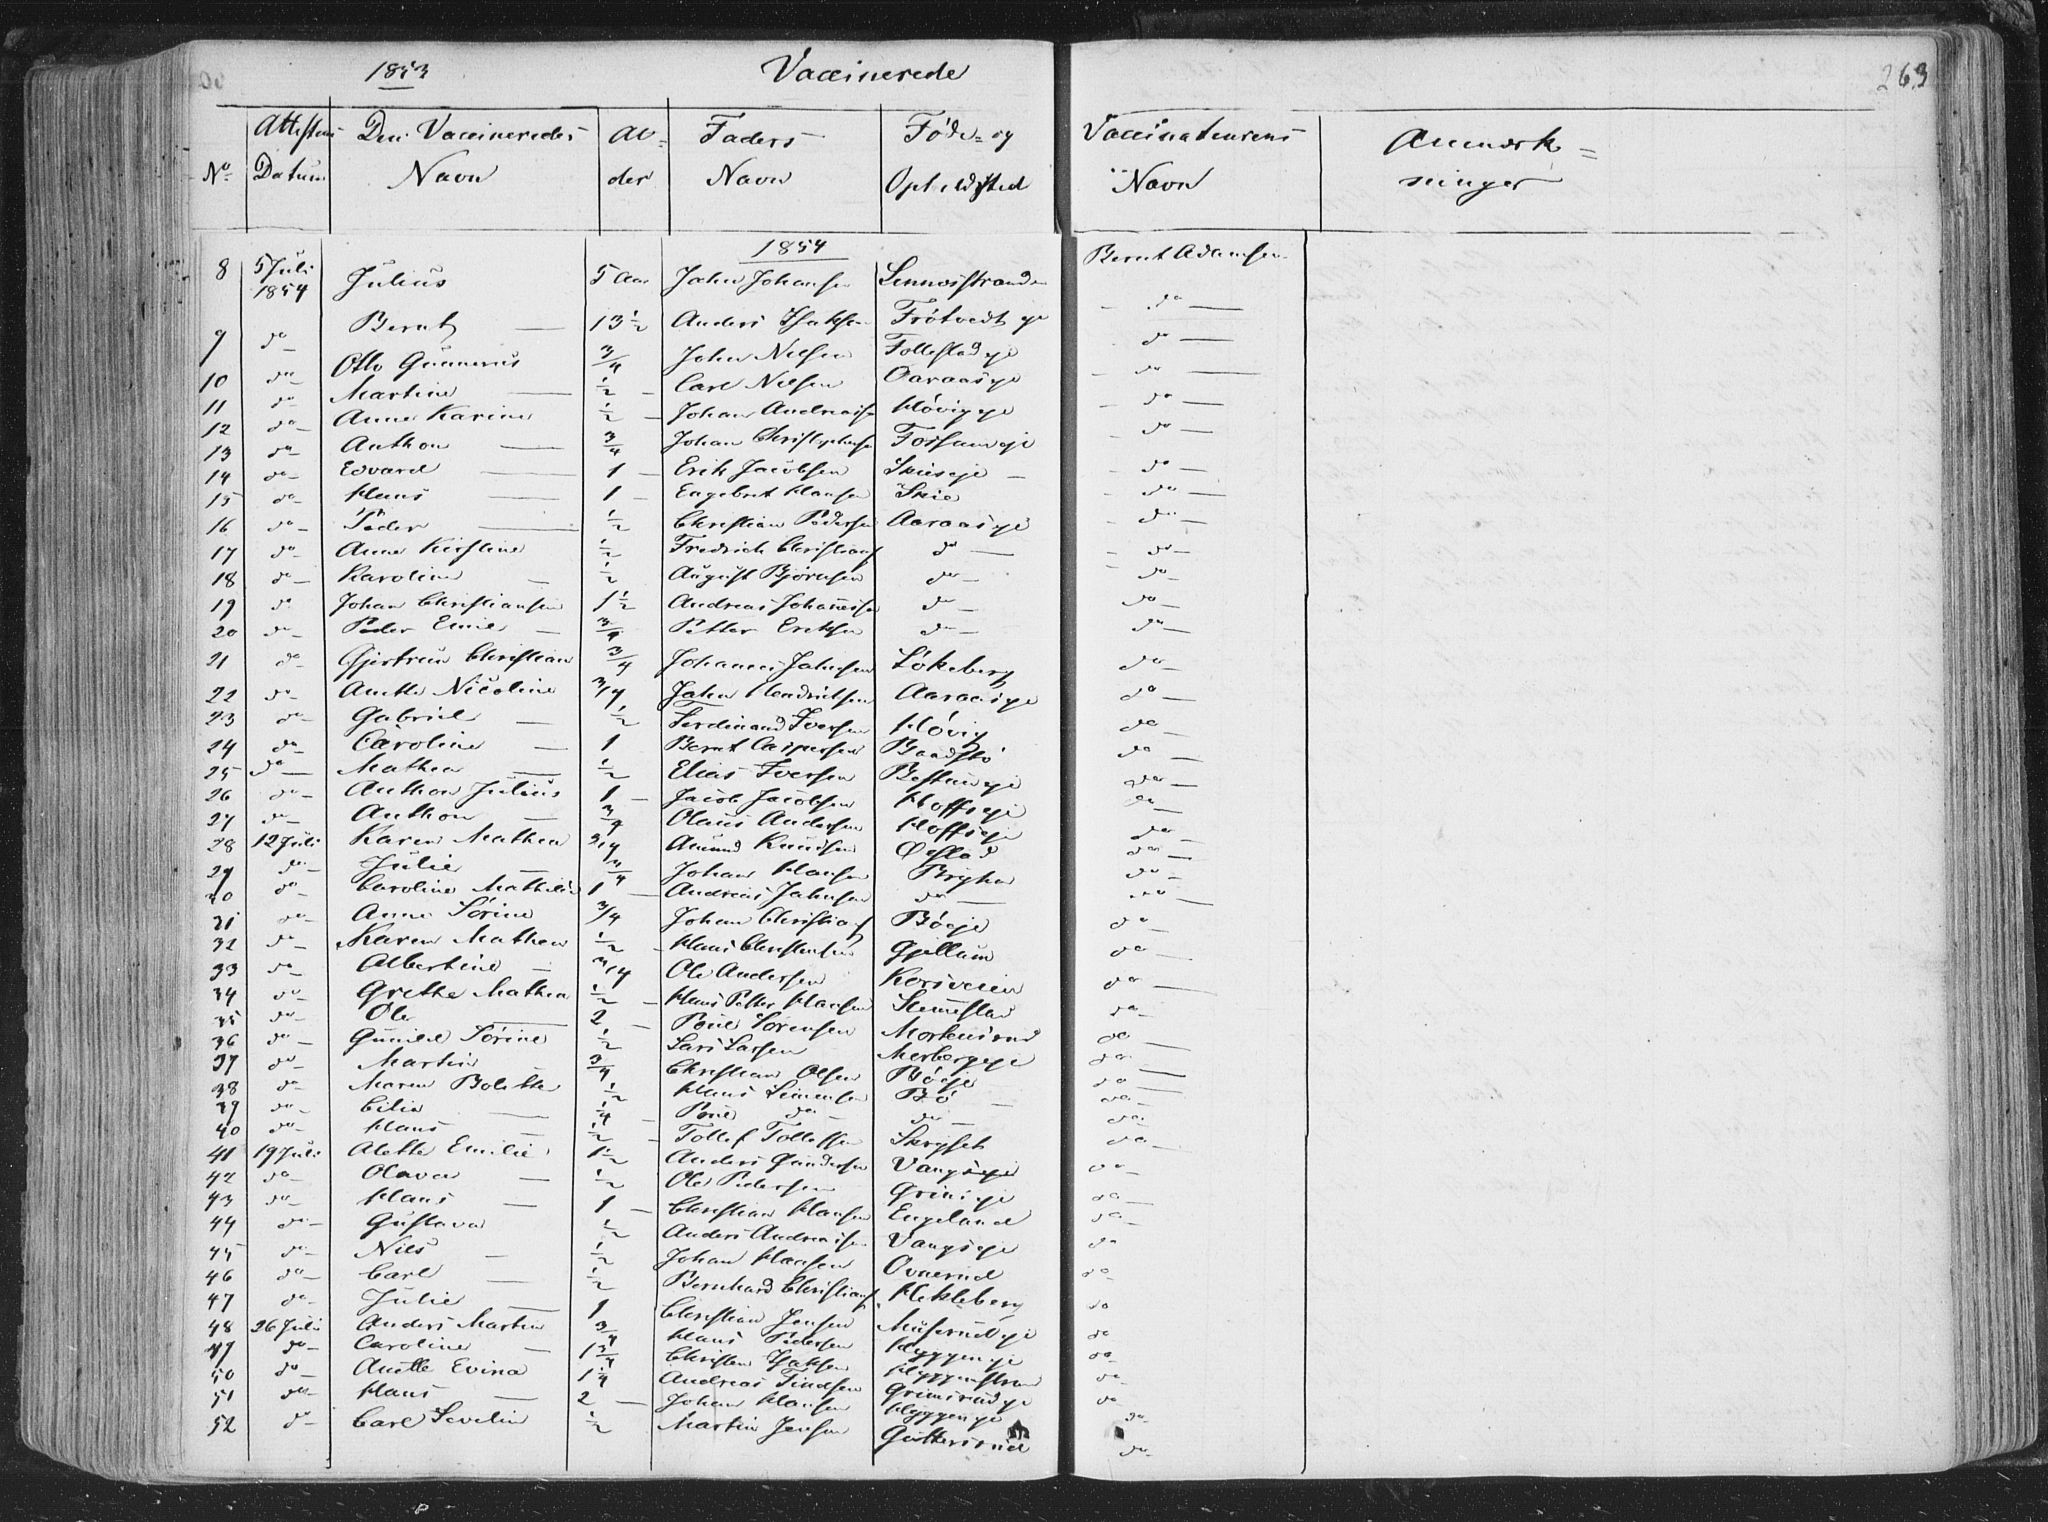 1853 Vaccinerede 263
No Attestens Datum Den Vaccineredes Navn Al-der Faders Navn Føde- og Opholdsted Vaccinateurens Navn Anmærk-ninger
1854
8 5 Juli 1854 Julius 5 Aar Jahn Johansen Lennosstranden Bernt Adamsen
9 do Bernt 13 1/2 Anders Isaksen Frøtvedt eje do
10 do Otto Gunnerus 3/4 John Nielsen Follestad eje do
11 do Martine 1/2 Carl Nielsen Aaraaseje do
12 do Anne Karine 1/2 Johan Andreas Høvig eje do
13 do Anthon 3/4 Johan Christophersen do
14 do Edvard 1 Erik Jacobsen Skieeje do
15 do Hans 1 Engebret Hansen Skie do
16 do Peder 1/2 Christian Pedersen Aaraaseje do
17 do Anne Kirstine 1/2 Fredrich Christians do do
18 do Karoline 1/2 August Bjørnsen do do
19 do Johan Christiansen 1 1/2 Andreas Johannesen do do
20 do Peder Emil 3/4 Petter Eriksen do do
21 do Christian 3/4 Johannes Jahnsen Løkeberg do
22 do Anette Nicoline 3/4 Jahn Hendriksen Aaraaseje do
23 do Gabriel 1/2 Ferdinand Iversen Høvig do
24 do Caroline 1 Bernt Caspersen Baadstø do
25 do Mathea 1/2 Elias Iversen do
26 do Anthon Julius 1 Jacob Jacobsen Hoffseje do
27 do Anthon 3/4 Olaus Andersen Hoffseje do
28 12 Juli Karen Mathea 3/4 Amund Knudsen do
29 do Julie 3/4 Johan Hansen do
30 do Caroline Mathilde 1 Andreas Jahnsen do do
31 do Anne Sørine 3/4 Johan Christians Bøeje do
32 do Karen Mathea 1/2 Hans Christensen Gjellum do
33 do Albertine 3/4 Ole Andersen Korsveien do
34 do Grethe Mathea 1/2 Hans Petter Hansen Slemmestad do
35 do Ole 2 Poul Sørensen Mortensrud do
36 do Gunild Sørine 1/2 Lars Larsen Morbergeje do
37 do Martin 3/4 Christian Olsen Bøeje do
38 do Maren Bolette 1/2 Hans Simensen Bø do
39 do Cilia 1/4 Poul do do do
40 do Hans 1/2 Tollef Tollefsen Skryset do
41 19 Juli Alette Emilie 1 1/2 Anders Gundersen Vangseje do
42 do Olava 1/2 Ole Pedersen Grinieje do
43 do Hans 1 Christian Hansen Engeland do
44 do Gustava 1/2 Anders Andreasen Vangseje do
45 do Nils 1/2 Johan Hansen Ovnerud do
46 do Carl 1/2 Bernhard Christians Hekleberg do
47 do Julie 1 Christian Jensen Muserudeje do
48 26 Juli Anders Martin 3/4 Hans Pedersen Hyggeneje do
49 do Caroline 1 3/4 Christen Isaksen Hyggenstrand do
50 do Anette Evina 1 1/4 Andreas Findsen Grimsrudeje do
51 do Hans 2 Johan Hansen Hyggeneje do
52 do Carl Severin 1/2 Martin Jensen Guttersrud do